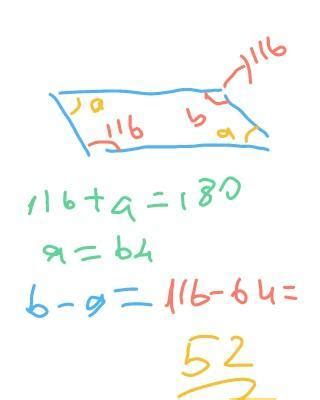 116
a
116
b
a
116 + a = 180
a = 64
b - a = 116 - 64 =
52